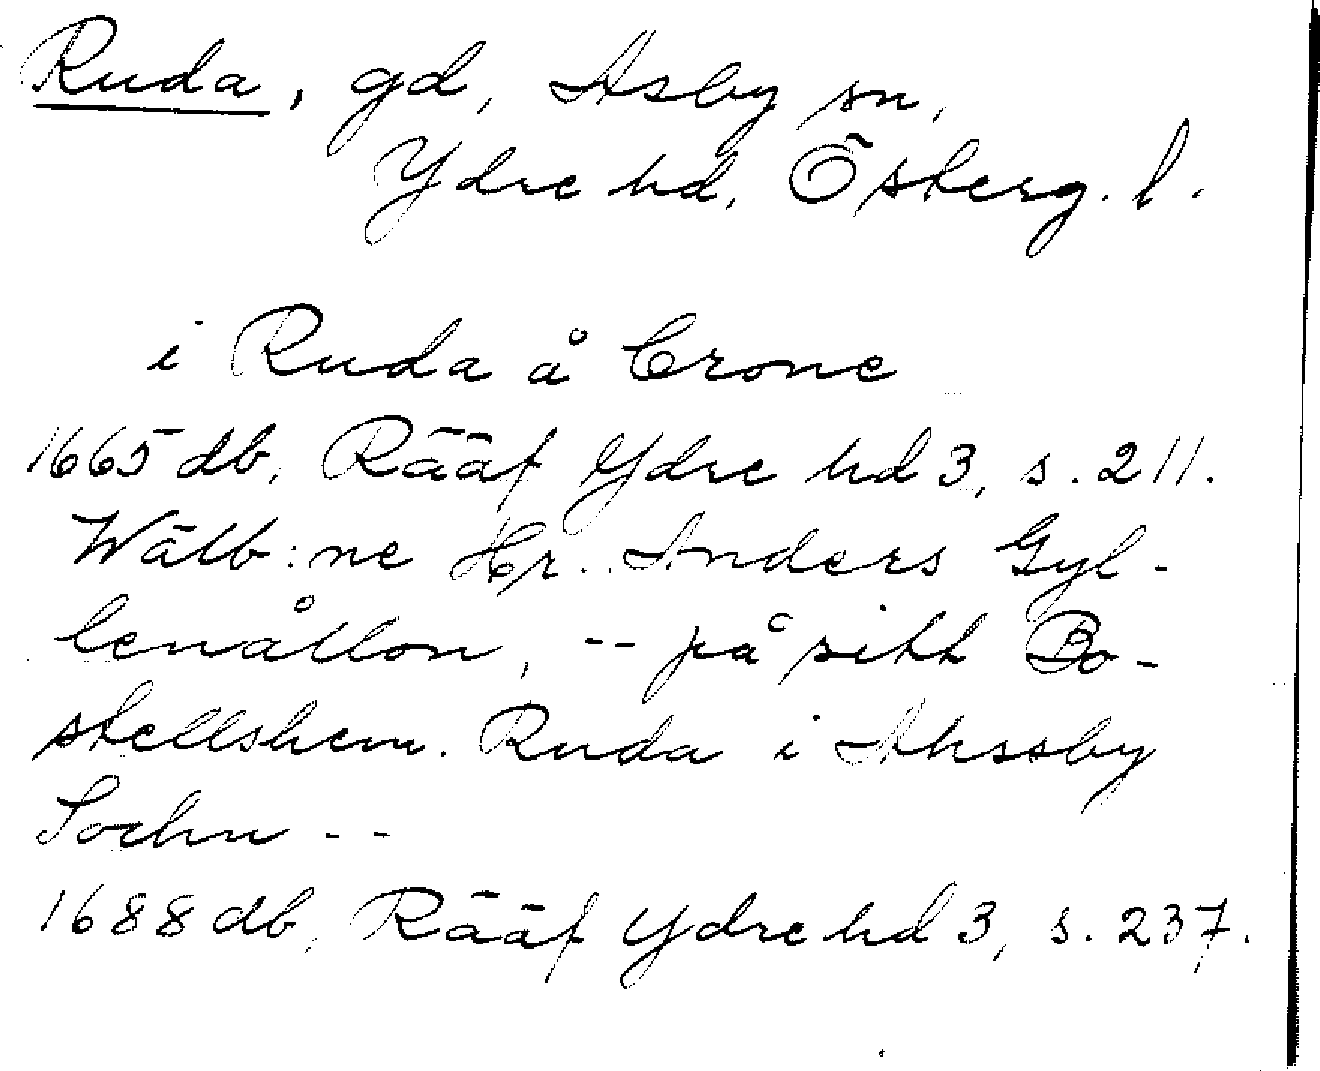 Ruda, gd, Asby sn,
Ydre hd, Österg. l.
i Ruda å Crone
1665 db, Rääf Ydre hd 3, s. 211.
Wälb:ne Hr. Anders Gyl-
lenådlon, -- på sitt Bo-
stellshem. Ruda i Ahssby
Sochn --
1688 db, Rääf Ydre hd 3, s. 237.